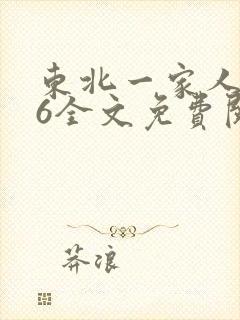 東北一家人
6全文免費閱
莽浪